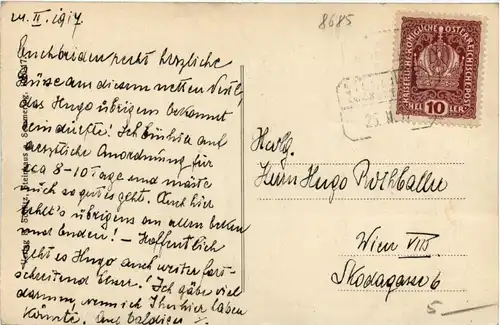 24. II. 1917
8685
Euch beiden recht herzliche
Grüsse aus diesem netten Nestl,
das Hugo übrigens bekannt
sein dürfte! Ich bin hier auf
ärztliche Anordnung für
ca 8-10 Tage und
mich so gut es geht. Auch hier
fehlt's übrigens an allen Ecken
und Enden! – Hoffentlich
geht es Hugo auch weiter fort-
schreitend besser! Ich gäbe viel
darum, wenn ich Ihn hier haben
könnte. Auf baldiges
KAISERLICHE KÖNIGLICHE ÖSTERREICHISCHE POST
HELLER 10 HELLER
25. II.
Herrn Hugo Rothballer
Wien VIII.
Skodagasse 6
5 —